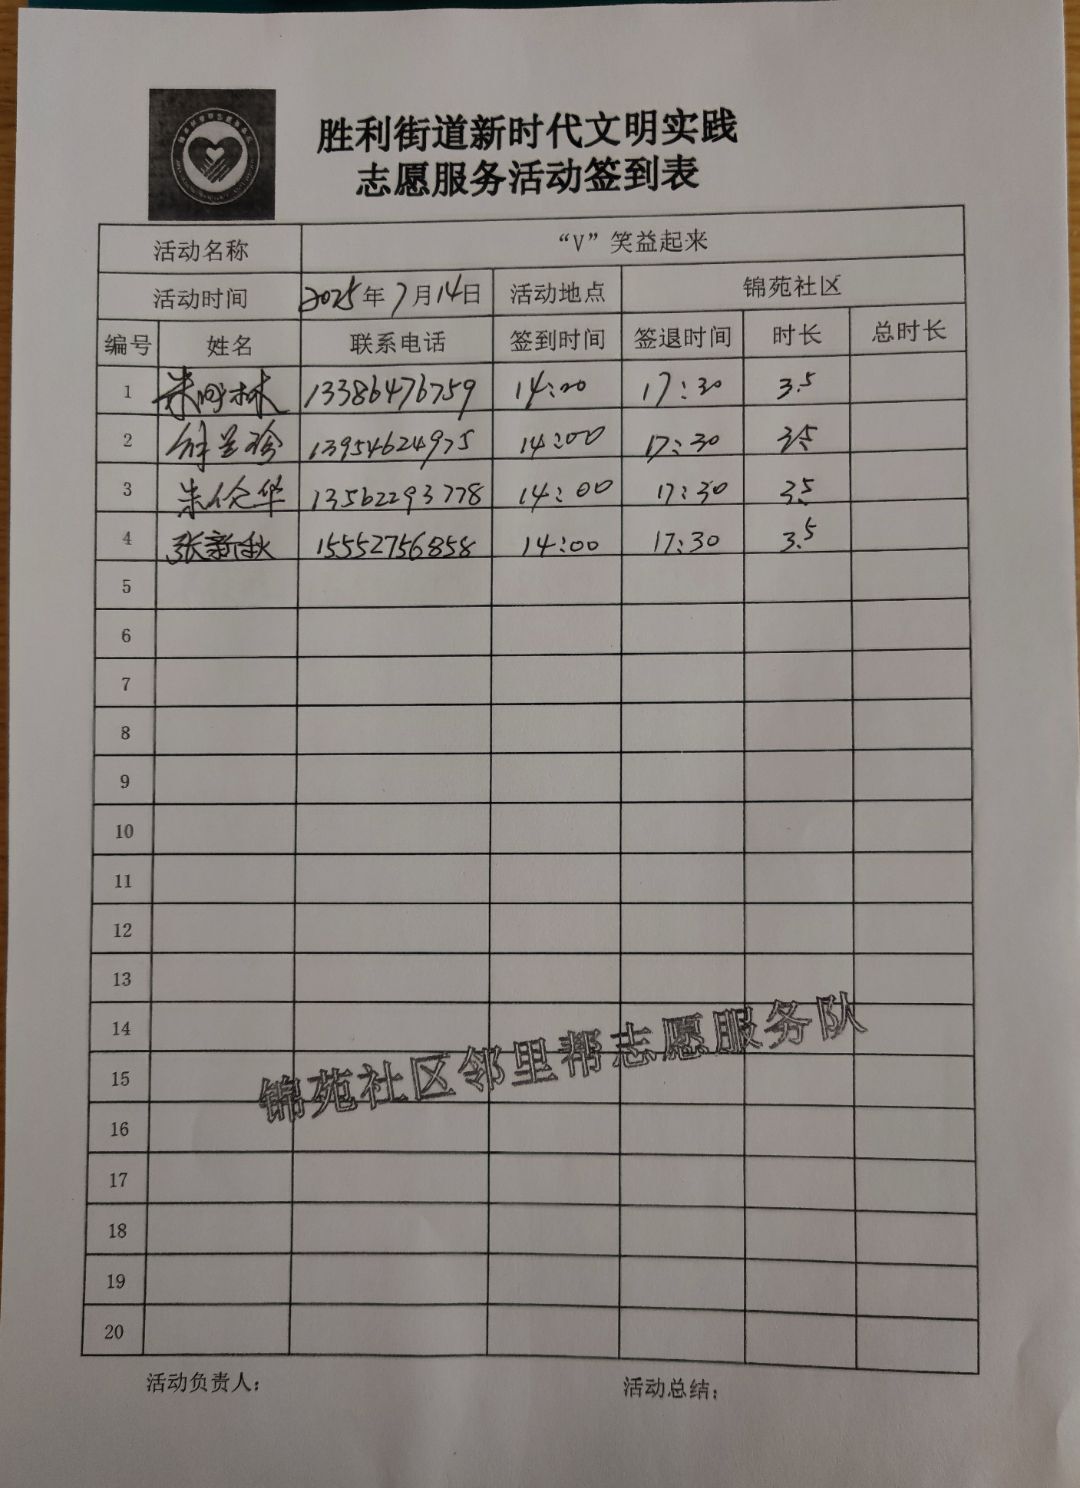 胜利街道新时代文明实践
志愿服务活动签到表
活动名称 “V”笑益起来
活动时间 2025年7月14日 活动地点 锦苑社区
编号 姓名 联系电话 签到时间 签退时间 时长 总时长
1 13386476759 14:00 17:30 3.5
2 13954624975 14:00 17:30 3.5
3 朱伦华 13562293778 14:00 17:30 3.5
4 张新秋 15552756858 14:00 17:30 3.5
5
6
7
8
9
10
11
12
13
14
15
16
17
18
19
20
锦苑社区邻里帮志愿服务队
活动负责人： 活动总结：